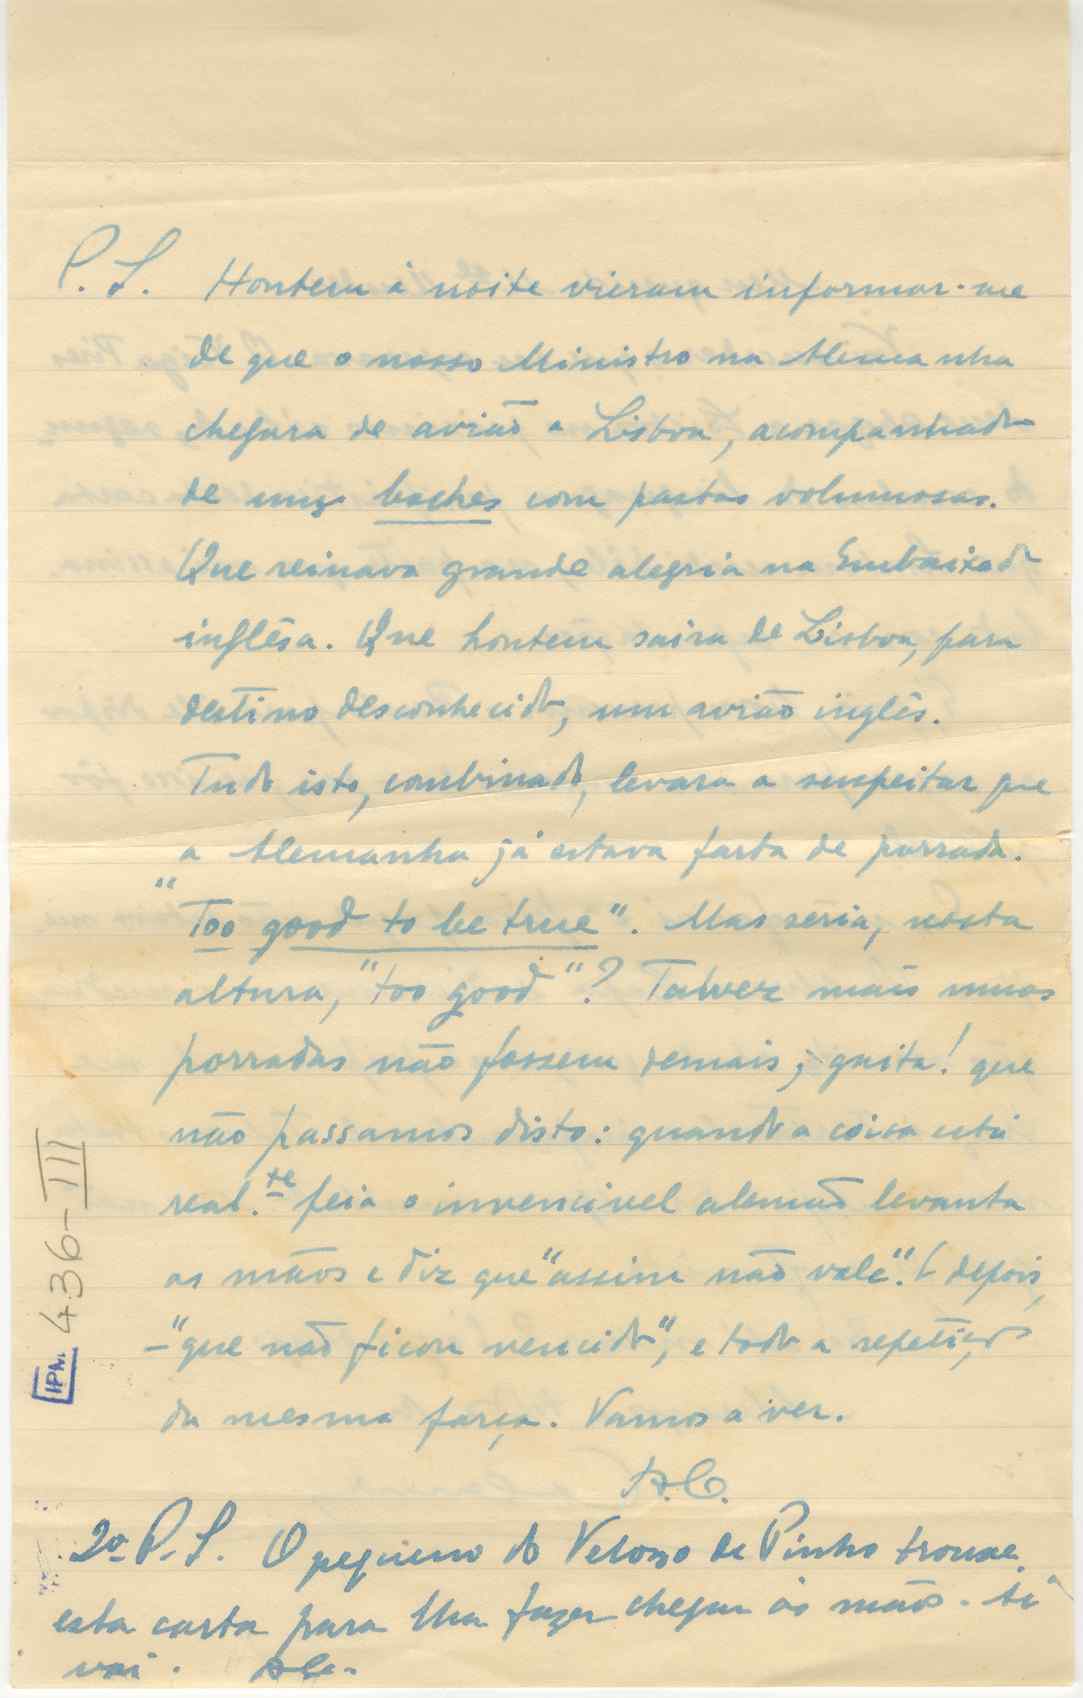 P.S. Hontem à noite vieram informar-me
de que o nosso Ministro na Alemanha
chegara de avião a Lisboa, acompanhado
de uns boches com pastas volumosas.
Que reinava grande alegria na Embaixada
inglêsa. Que hontem saira de Lisboa, para
destino desconhecido, um avião inglês.
Tudo isto, combinado, levara a suspeitar que
a Alemanha já estava farta de porrada.
"Too good to be true". Mas seria, nesta
altura, "too good"? Talvez mais umas
porradas não fossem demais; gaita! que
não passamos disto: quando a coisa está
real.te feia o invencivel alemão levanta
as mãos e diz que "assim não vale". E depois,
– "que não ficou vencido", e toda a repetição
da mesma farça. Vamos a ver.
A.C.
2º P.S. O pequeno do Veloso de Pinho trouxe
esta carta para lha fazer chegar às mãos. Aí
vai. AC.
IPM. 436-III